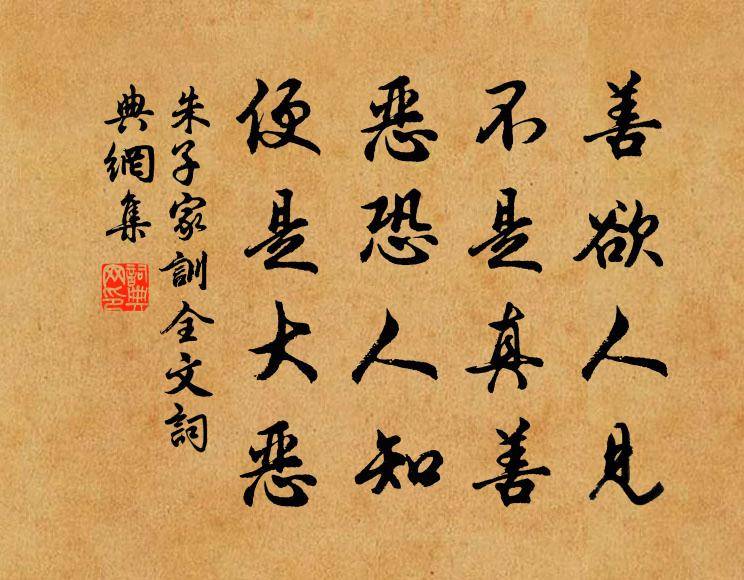 善欲人見
不是真善
惡恐人知
便是大惡
朱子家訓全文詞
典網集
詞典網印